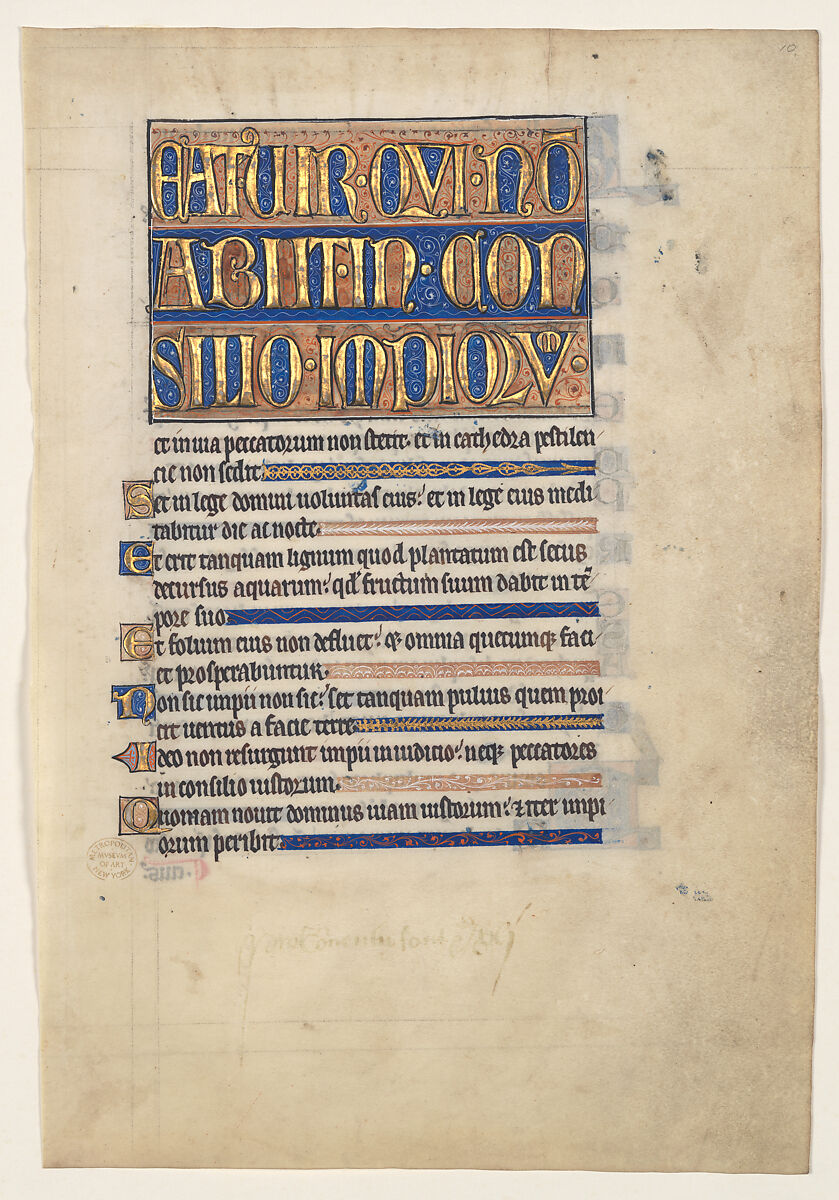 10
EAT·UIR·QVI·NŌ
ABIIT·IN·CON
SILIO·IMPIORVM·
et in uia peccatorum non stetit. et in cathedra pestilen
cie non sedit.
Set in lege domini uoluntas eius: et in lege eius medi
tabitur die ac nocte.
Et erit tanquam lignum quod plantatum est secus
decursus aquarum: qd' fructum suum dabit in tē
pore suo
Et folium eius non defluet: & omnia quecumqꝫ faci
et prosperabuntur.
Non sic impii non sic: set tanquam puluis quem proi
cit uentus a facie terre
Ideo non resurgunt impii in iudicio: neqꝫ peccatores
in consilio iustorum.
Quoniam nouit dominus uiam iustorum: & iter impi
orum peribit.
METROPOLITAN
MVSEVM
OF ART
NEW YORK